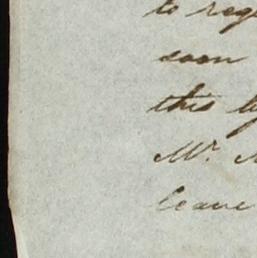 to
soon
this
Mr.
leave